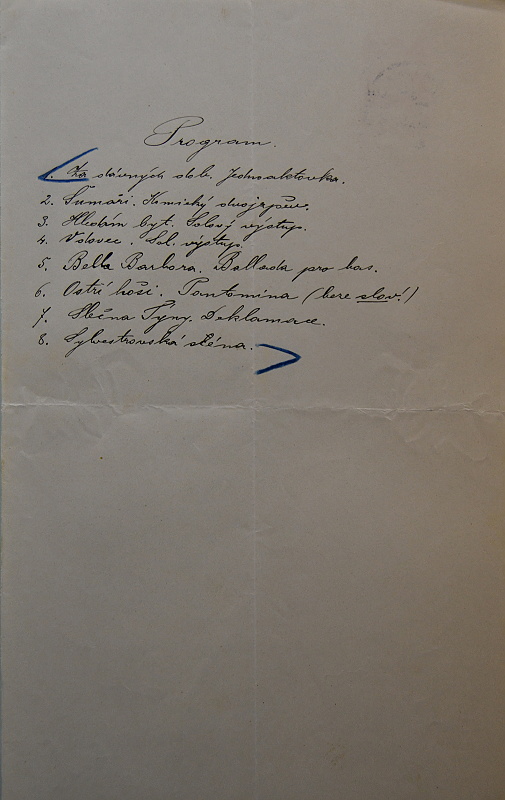 Program.
1. Za dávných dob. Jednoaktovka.
2. Šumaři. Komický dvojzpěv.
3. Hledám byt. Solový výstup.
4. Vdovec. Sol. výstup.
5. Bella Barbora. Ballada pro bas.
6. Ostří hoši. Pantomina (bere slov!)
7. Slečna Týny. Deklamace.
8. Sylvestrovská scéna.